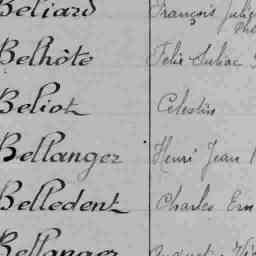 Beliard François Julie
Belhôte Felix Suliac
Beliot Célestin
Bellanger Henri Jean
Belledent Charles Ern
Bellanger Augustin